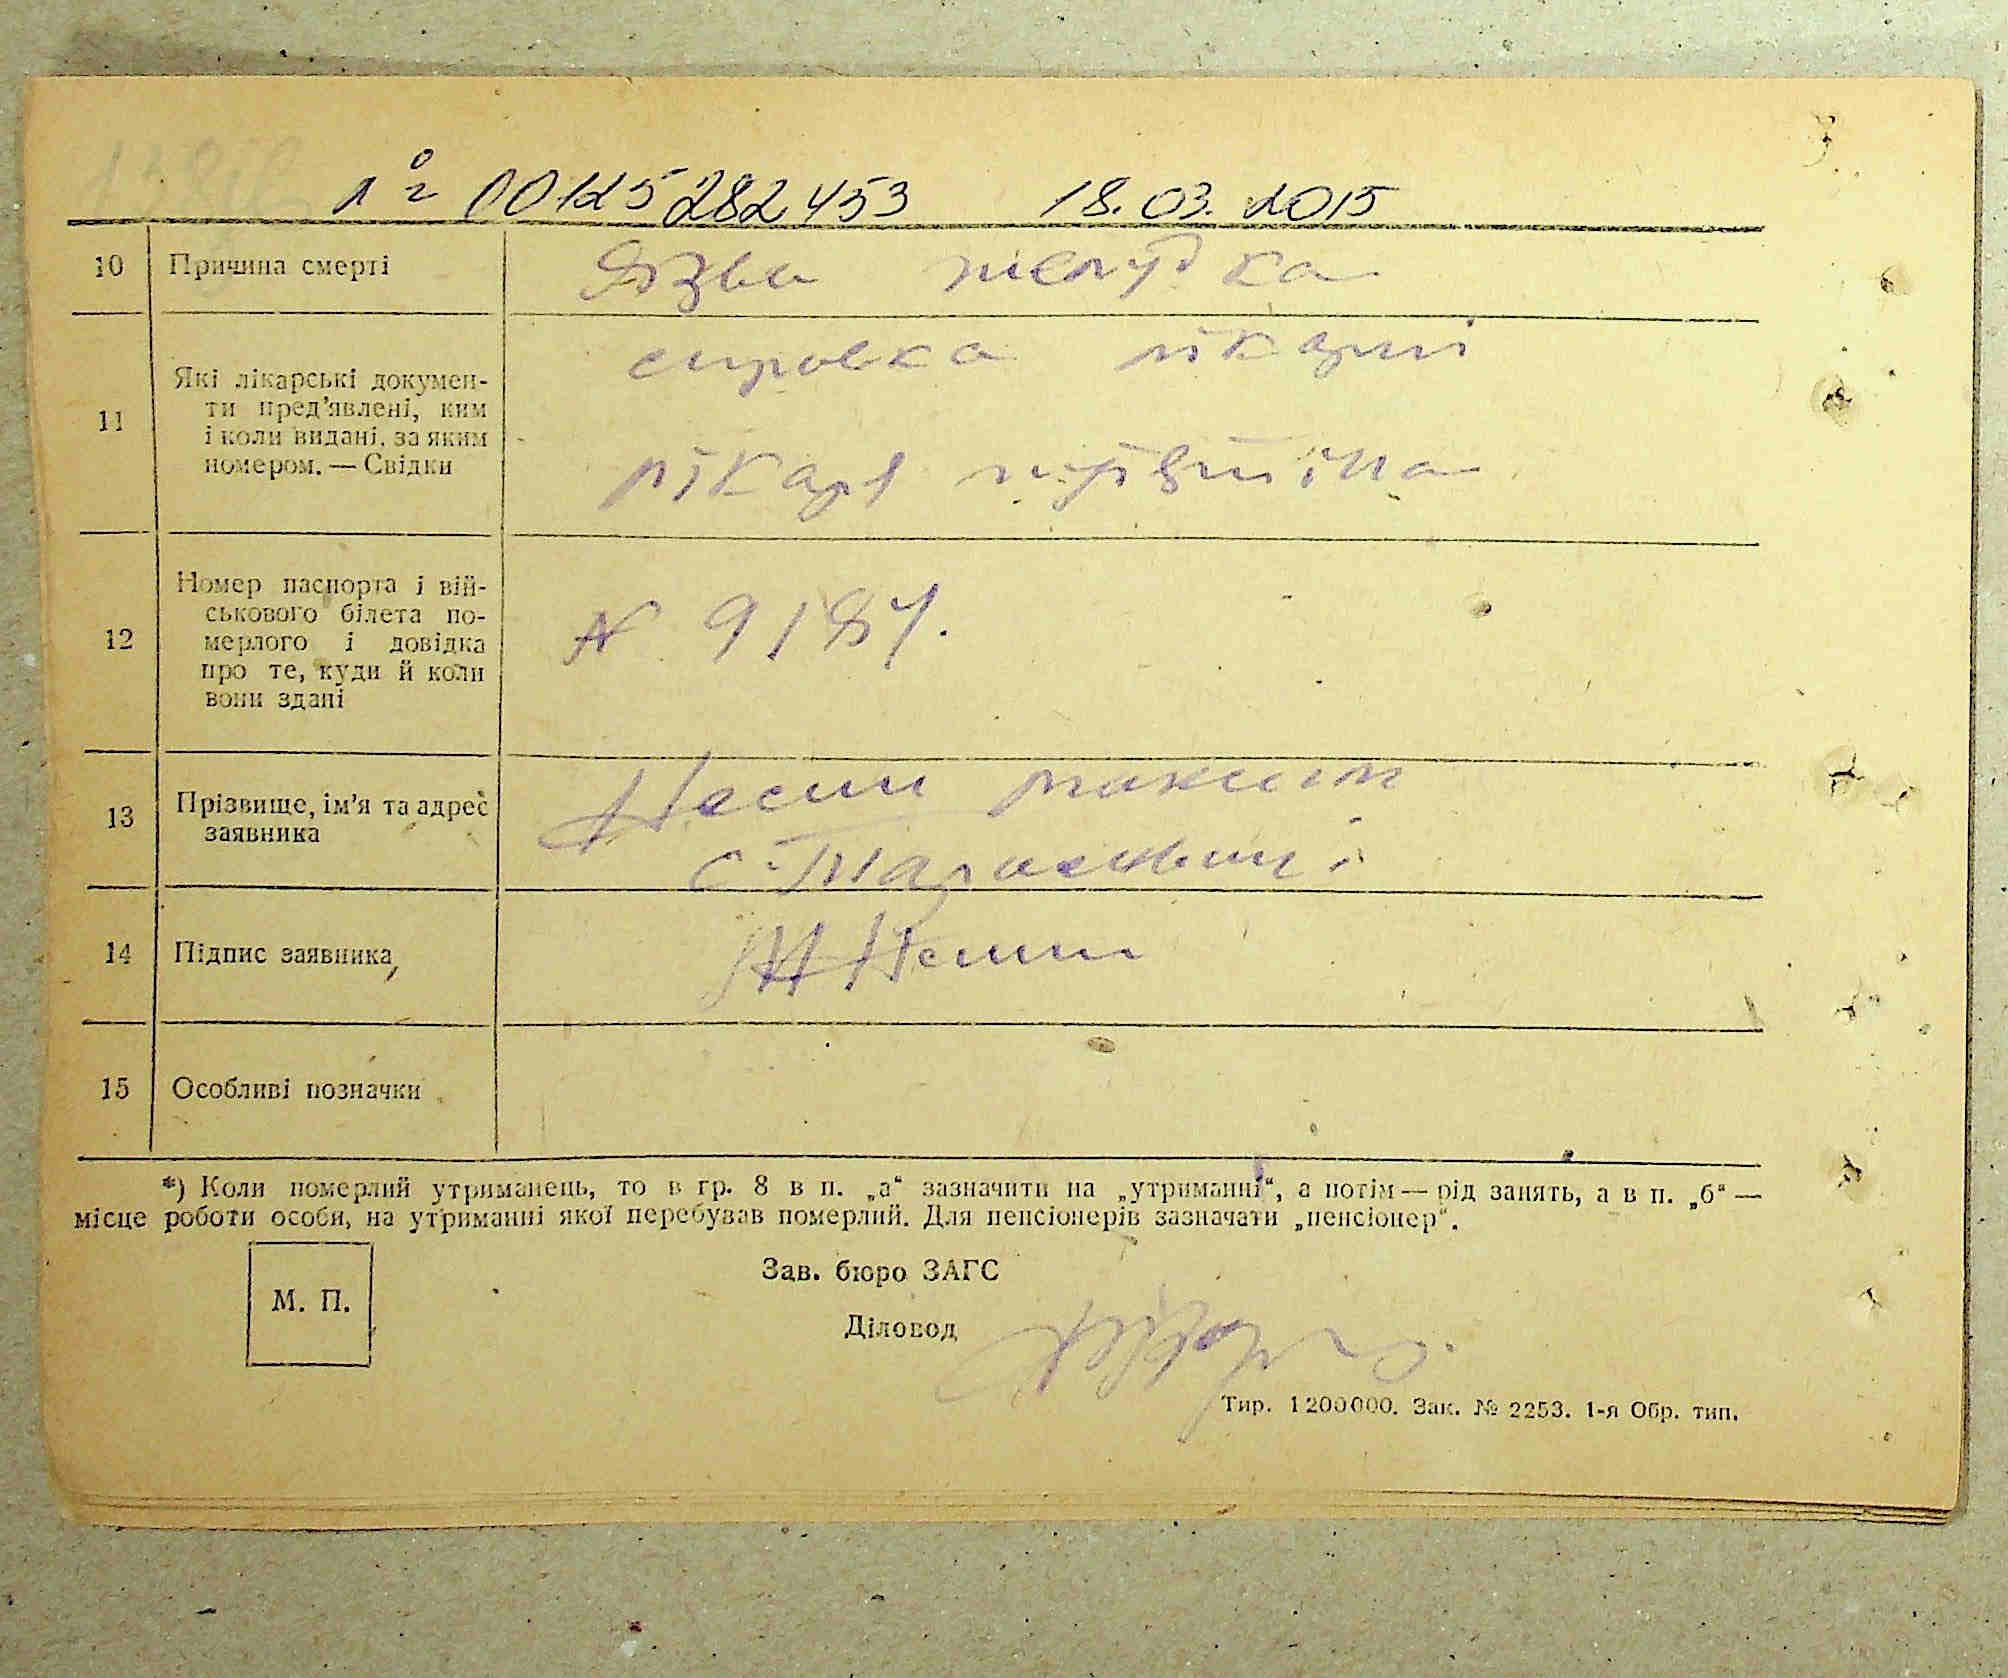 00125282453 18.03.2015
10 Причина смерті Язва желудка
11 Які лікарські докумен-
ти пред'явлені, ким
і коли видані, за яким
номером. — Свідки
справка лікарні
лікаря
12 Номер паспорта і вій-
ськового білета по-
мерлого і довідка
про те, куди й коли
вони здані
N 9184.
13 Прізвище, ім'я та адрес
заявника
Несин максим
с.
14 Підпис заявника
15 Особливі позначки
*) Коли померлий утриманець, то в гр. 8 в п. „а“ зазначити на „утриманні“, а потім — рід занять, а в п. „б“ —
місце роботи особи, на утриманні якої перебував померлий. Для пенсіонерів зазначати „пенсіонер“.
М. П.
Зав. бюро ЗАГС
Діловод
Тир. 1200000. Зак. № 2253. 1-я Обр. тип.